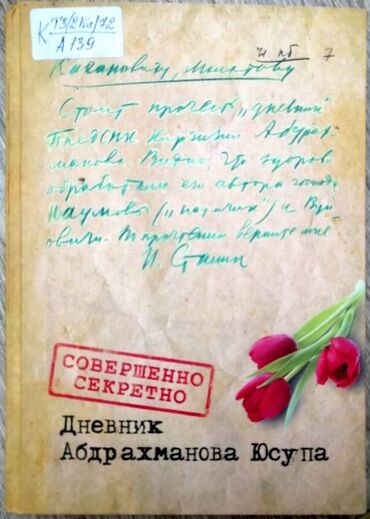 К 93/2Ки/72
А 139
7
Кагановичу, Молотову
Стоит прочесть „дневник"
Предсник Киргизии Абдрах-
манова. Видно, что здорово
обработали его автора господа
Наумов („научник") и Вуй-
ович. По прочтении верните мне
И. Сталин
СОВЕРШЕННО
СЕКРЕТНО
Дневник
Абдрахманова Юсупа